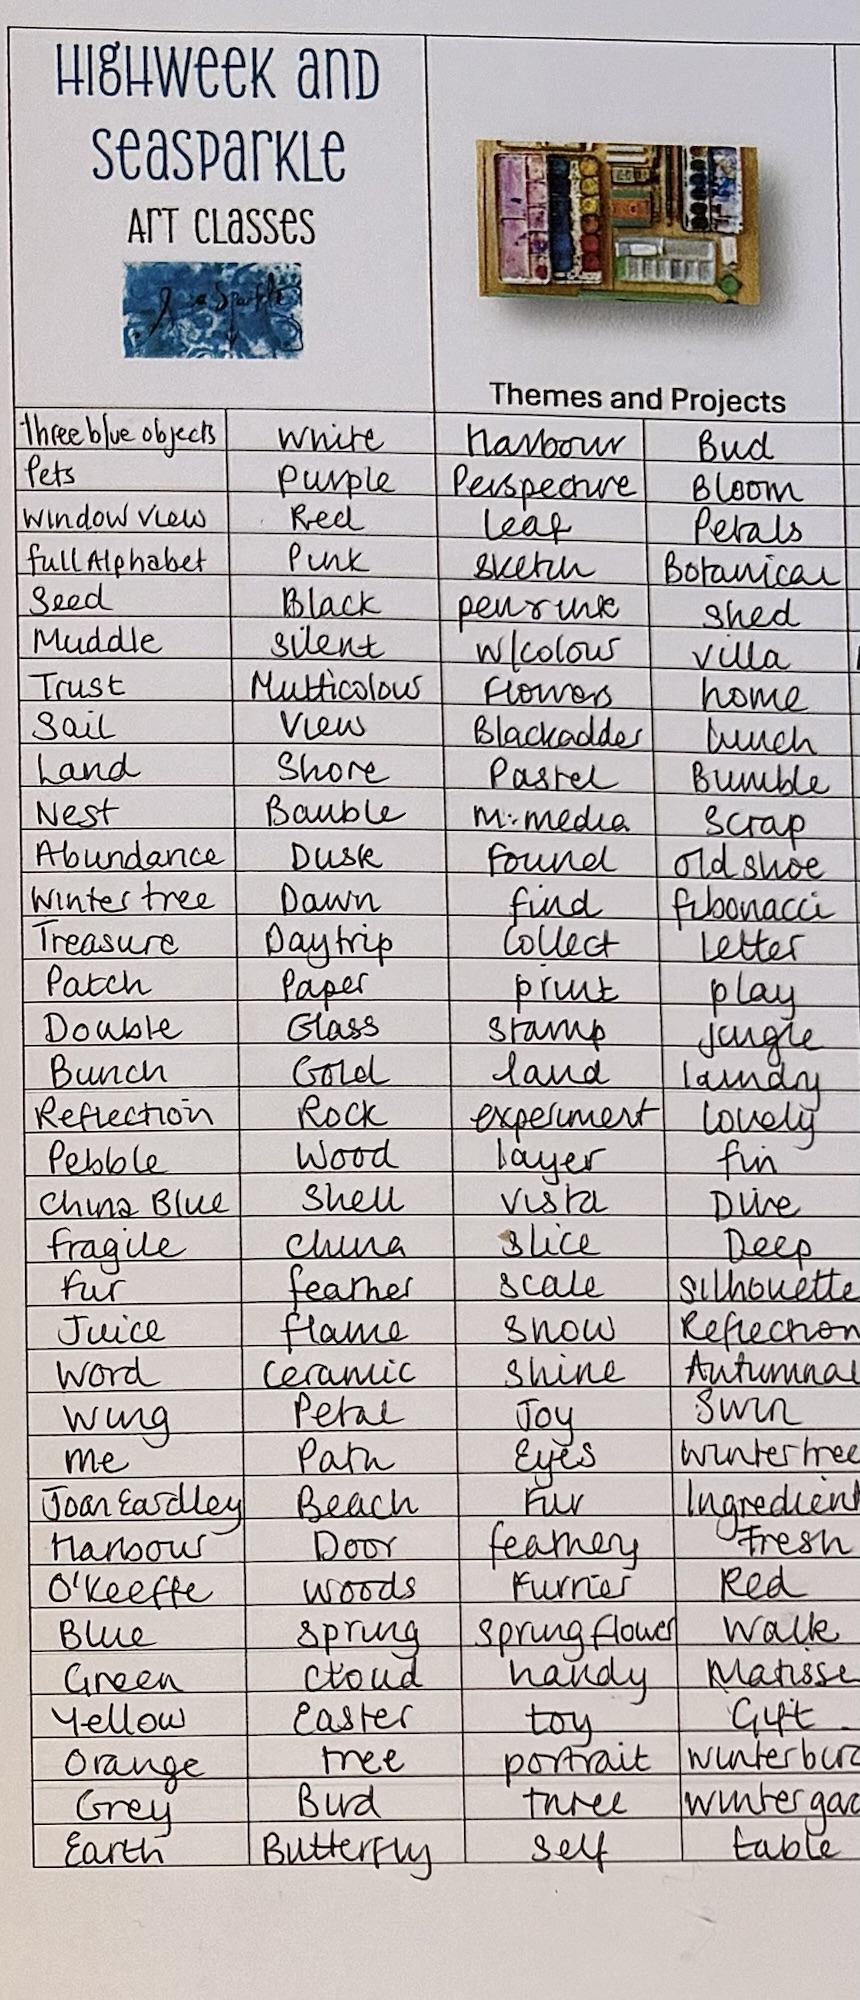 HIGHWEEK AND
SEASPARKLE
ART CLASSES
Themes and Projects
Three blue objects White Harbour Bud
Pets Purple Perspective Bloom
Window View Red Leaf Petals
Full Alphabet Pink Sketch Botanical
Seed Black pen & ink shed
Muddle silent w/colour villa
Trust Multicolour Flowers home
Sail View Blackadder lunch
Land Shore Pastel Bumble
Nest Bauble M.media Scrap
Abundance Dusk Found old shoe
Winter tree Dawn find fibonacci
Treasure Daytrip Collect Letter
Patch Paper print play
Double Glass stamp jungle
Bunch Gold land laundry
Reflection Rock experiment lovely
Pebble Wood layer fin
China Blue Shell vista Dive
fragile china slice Deep
Fur feather scale silhouette
Juice flame snow Reflection
Word ceramic shine Autumnal
Wing Petal Joy Swim
me Path Eyes Winter tree
Joan Eardley Beach Fur Ingredient
Harbour Door feathery Fresh
O'Keeffe woods Furrier Red
Blue spring spring flower Walk
Green cloud handy Matisse
Yellow Easter toy Gift
Orange tree portrait winter
Grey Bird three winter
Earth Butterfly self table